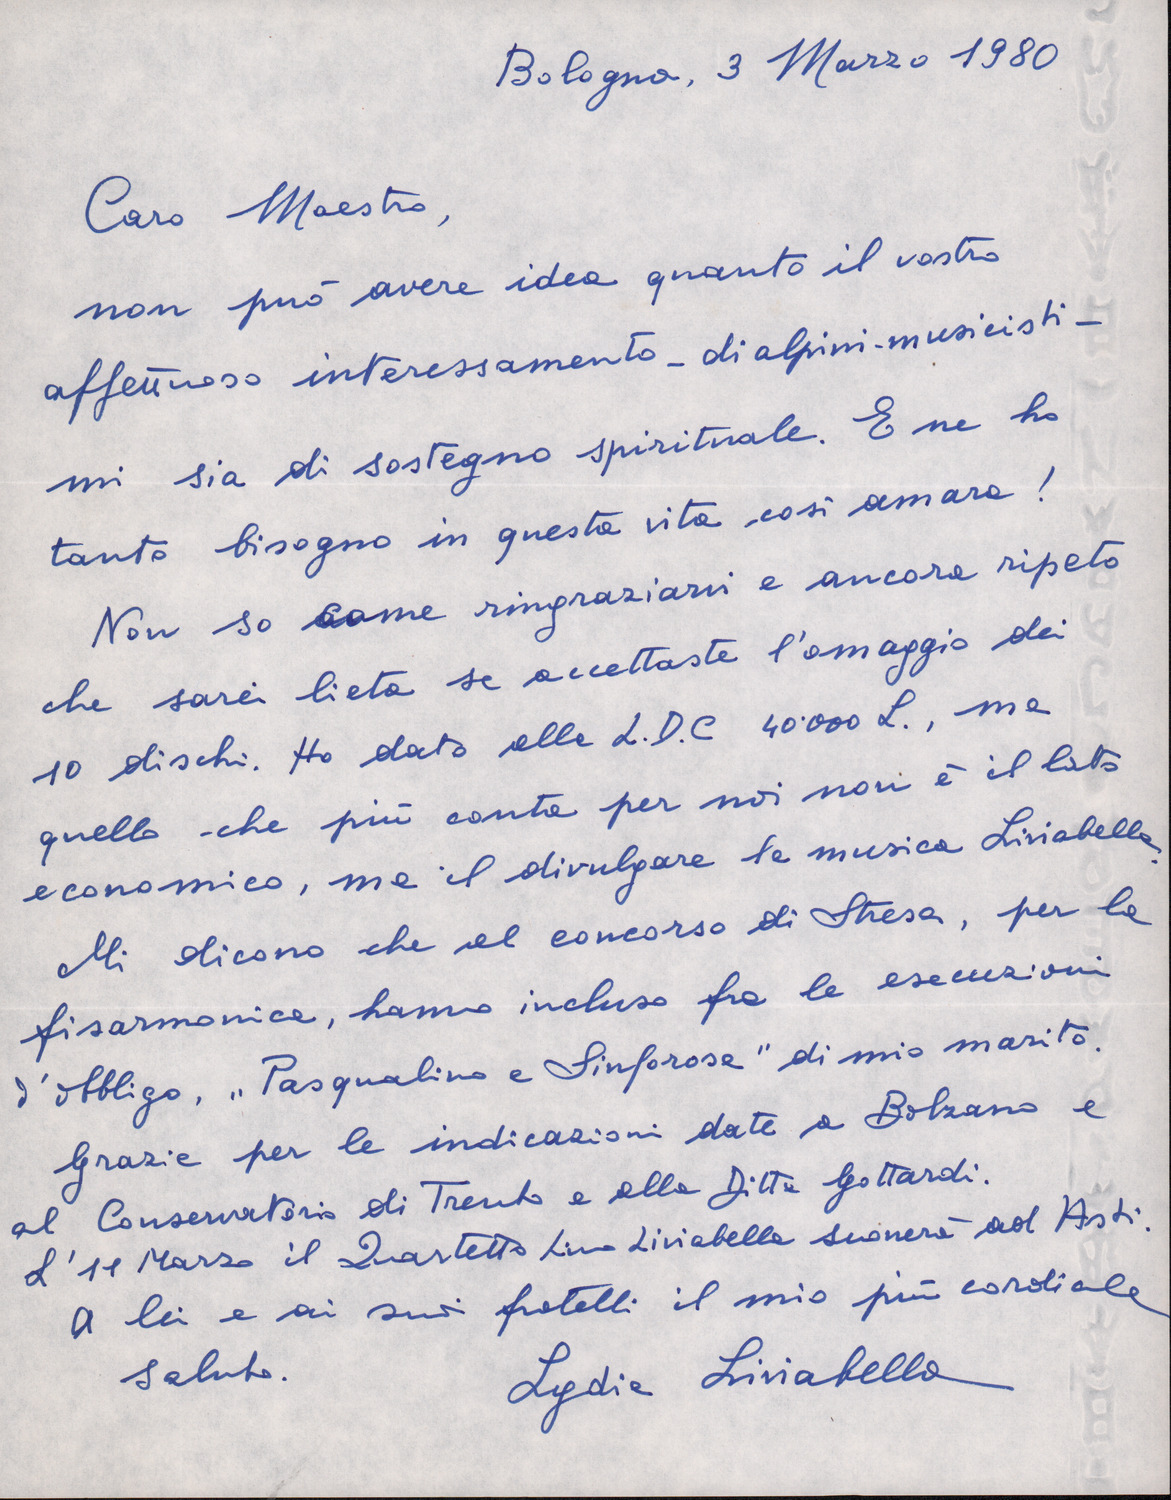 Bologna, 3 Marzo 1980
Caro Maestro,
non può avere idea quanto il vostro
affettuoso interessamento - di alpini-musicisti -
mi sia di sostegno spirituale. E ne ho
tanto bisogno in questa vita così amara!
Non so come ringraziarvi e ancora ripeto
che sarei lieta se accettaste l'omaggio dei
10 dischi. Ho dato alla L.D.C 40.000 L., ma
quello che più conta per noi non è il lato
economico, ma il divulgare la musica Liviabella.
Mi dicono che al concorso di Stresa, per la
fisarmonica, hanno incluso fra le esecuzioni
d'obbligo, "Pasqualino e Sinforosa" di mio marito.
Grazie per le indicazioni date a Bolzano e
al Conservatorio di Trento e alla Ditta Gottardi.
L'11 Marzo il Quartetto Lino Liviabella suonerà ad Asti.
A lei e ai suoi fratelli il mio più cordiale
saluto.
Lydia Liviabella